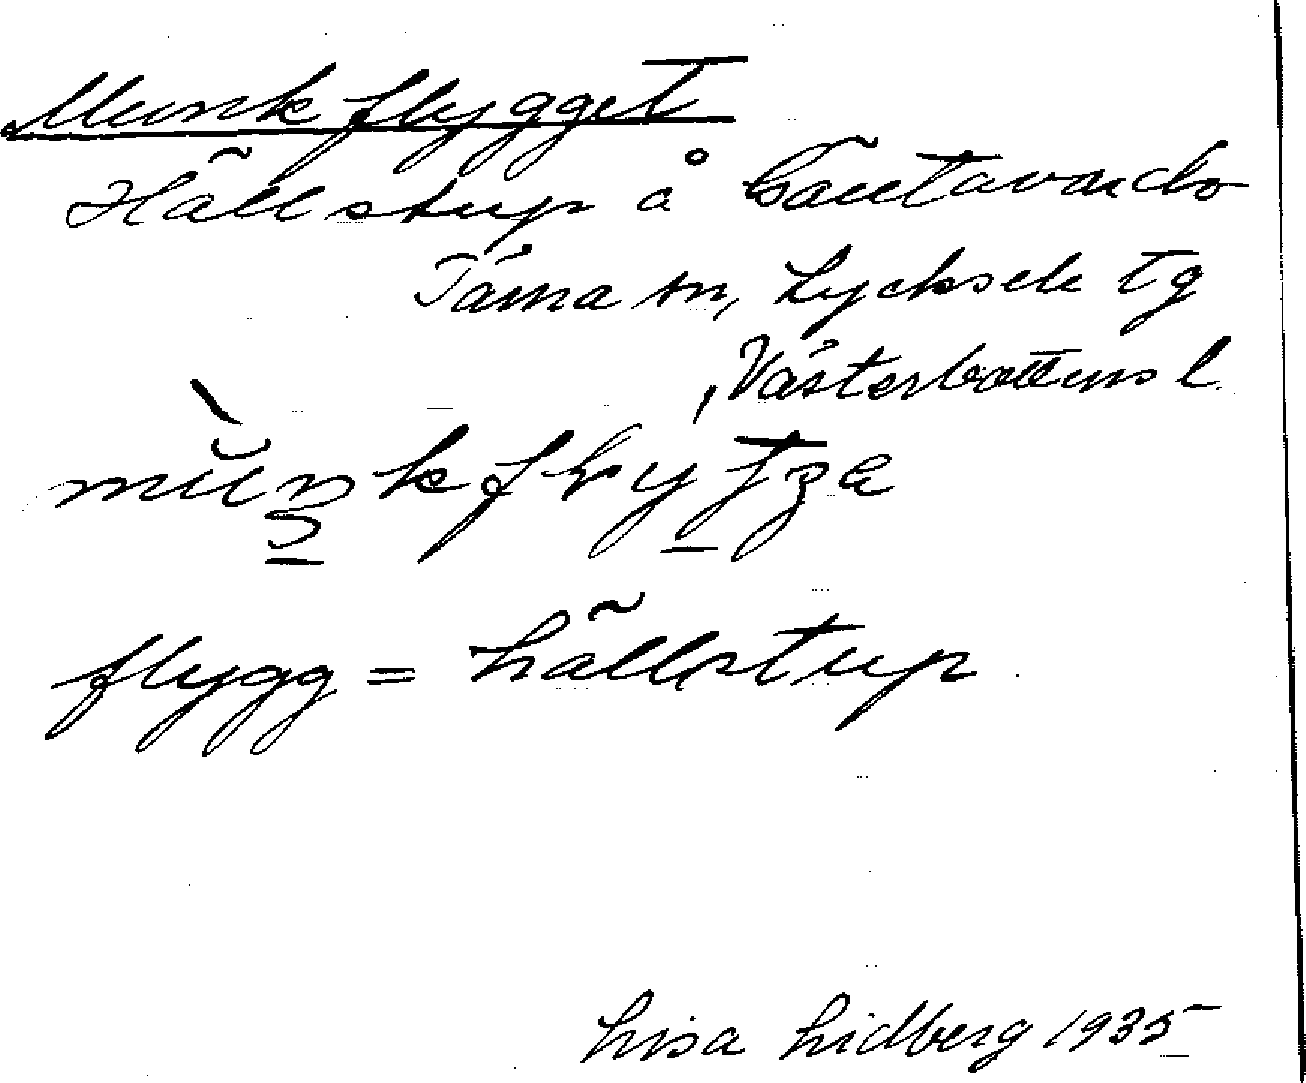 Munkflygget
Hällstup å Bäutavardo
Tärna sn, Lycksele tg
Västerbottens l.
flygg = hällstup
Lisa Lidberg 1935